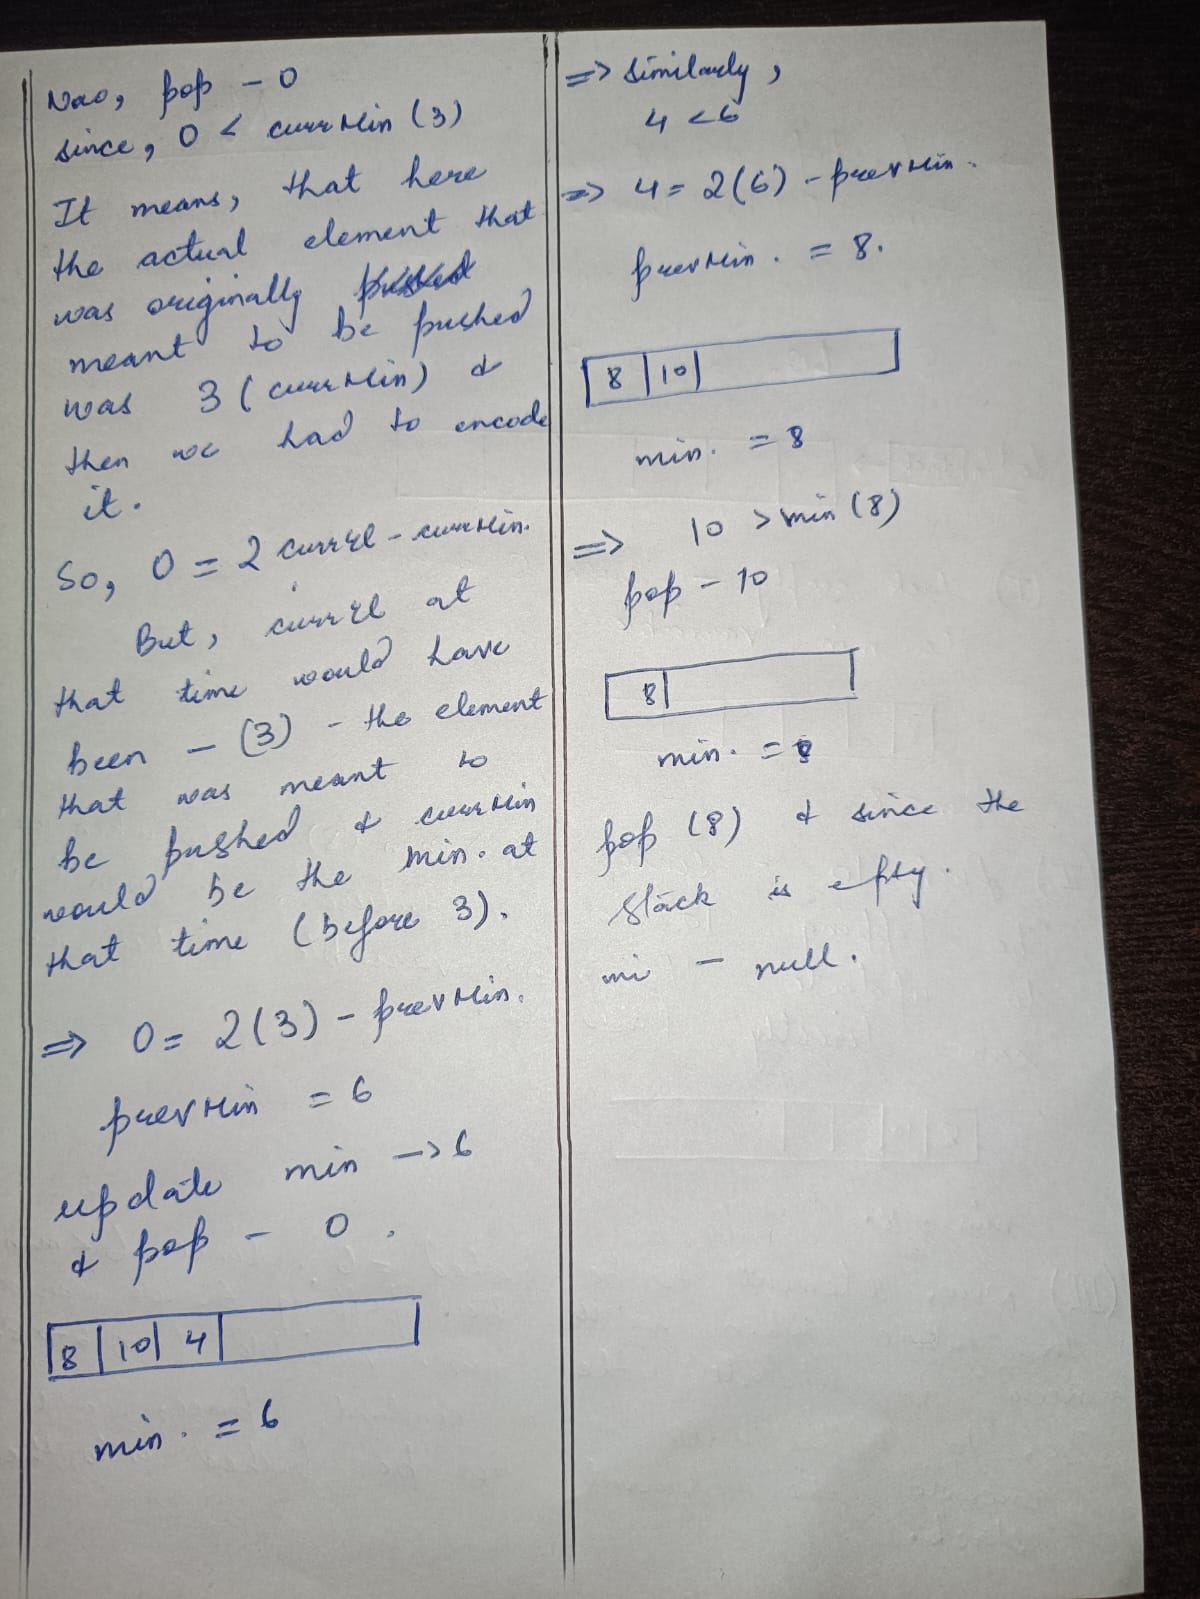 Now, pop - 0
since, 0 < currMin (3)
It means, that here
the actual element that
was originally
meant to be pushed
was 3 (currMin) &
then we had to encode
it.
So, 0 = 2 currEl - currMin.
But, currEl at
that time would have
been - (3) - the element
that was meant to
be pushed & currMin
would be the min. at
that time (before 3).
=> 0 = 2(3) - prevMin.
prevMin = 6
update min -> 6
& pop - 0.
8 | 10 | 4 |
min. = 6
=> Similarly,
4 < 6
=> 4 = 2(6) - prevMin.
prevMin. = 8.
8 | 10 |
min. = 8
=> 10 > min (8)
pop - 10
8 |
min. = 8
pop (8) & since the
stack is epty.
mi - null.